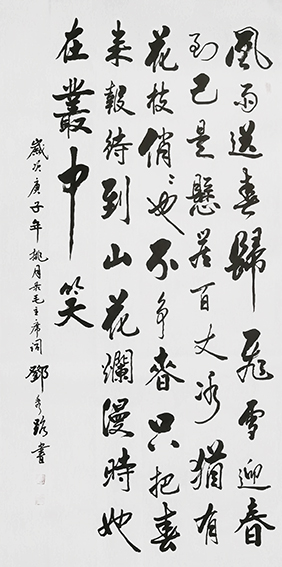 風雨送春歸飛雪迎春
到已是懸崖百丈冰猶有
花枝俏〻也不争春只把春
来報待到山花爛漫時她
在叢中笑
歲次庚子年桃月毛主席词鄧書